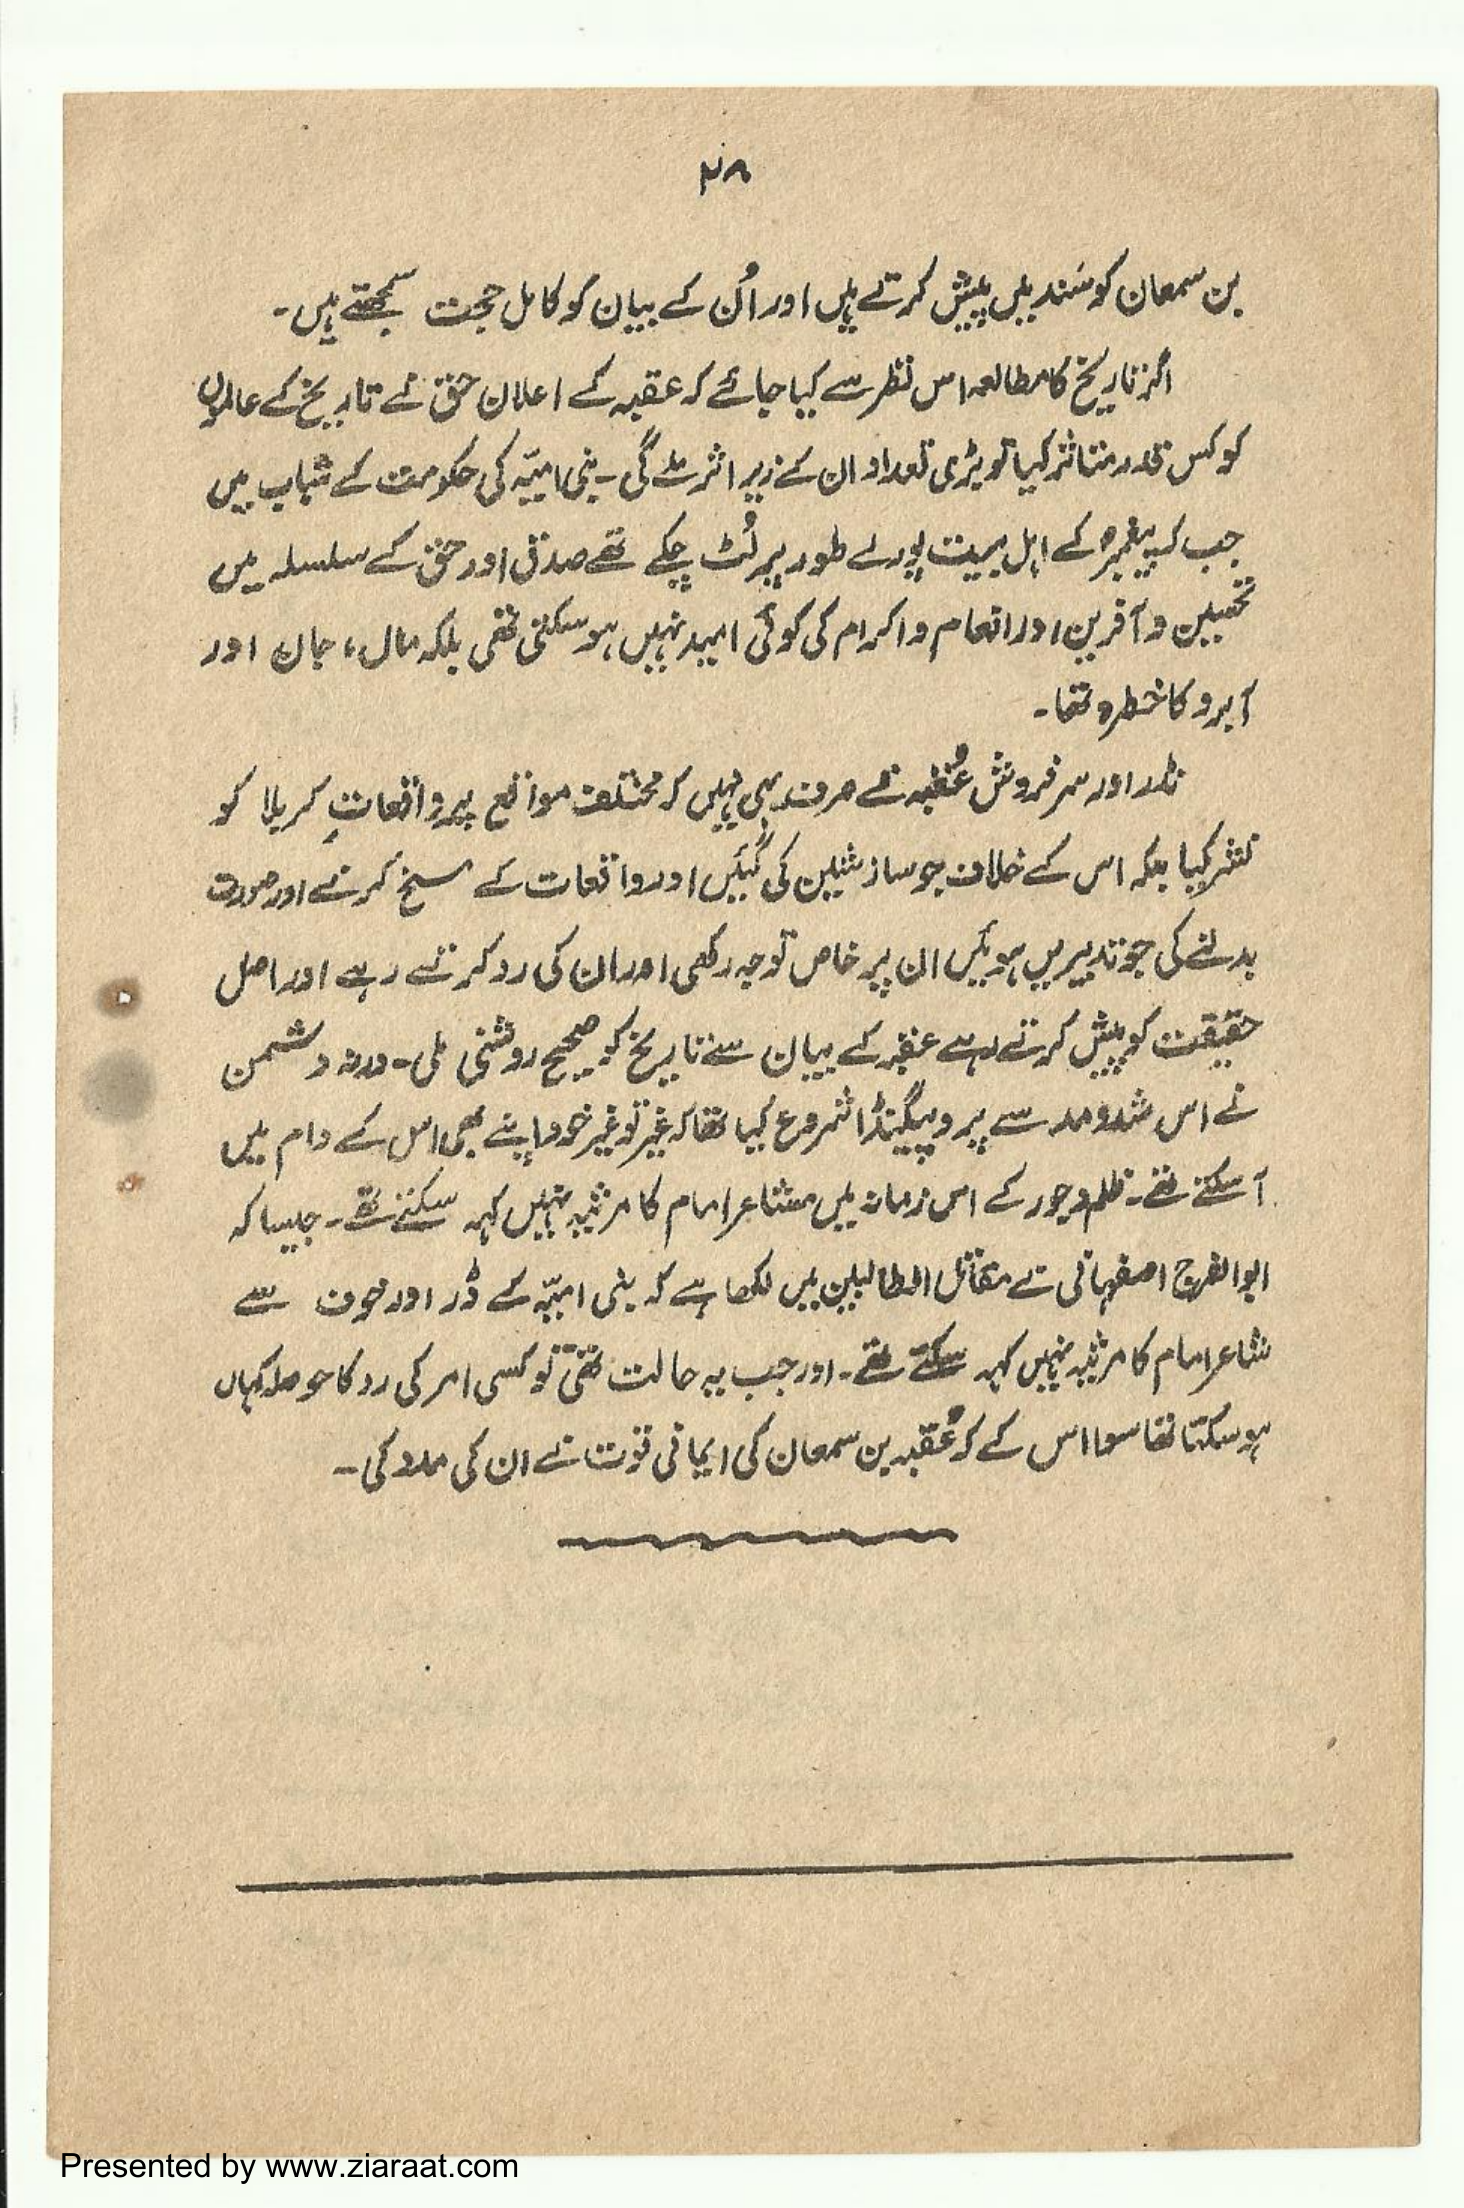 ۴۸
بن سمعان کو سَند میں پیش کرتے ہیں اور اُن کے بیان کو کامل حجت سمجھتے ہیں۔
اگر تاریخ کا مطالعہ اس نظر سے کیا جائے کہ عقبہ کے اعلان حق نے تاریخ کے عالموں
کو کس قدر متاثر کیا تو بڑی تعداد ان کے زیر اثر ملے گی۔ بنی امیّہ کی حکومت کے شباب میں
جب کہ پیغمبرؐ کے اہل بیت پورے طور پر لُٹ چکے تھے صدق اور حق کے سلسلہ میں
تحسین و آفرین اور انعام و اکرام کی کوئی امید نہیں ہو سکتی تھی بلکہ مال، جان اور
آبرو کا خطرہ تھا۔
نڈر اور سر فروش عُقبہ نے صرف یہی نہیں کہ مختلف مواقع پر واقعاتِ کربلا کو
نشر کیا بلکہ اس کے خلاف جو سازشیں کی گئیں اور واقعات کے مسخ کرنے اور صورت
بدلنے کی جو تدبیریں ہوئیں ان پر خاص توجہ رکھی اور ان کی رد کرتے رہے اور اصل
حقیقت کو پیش کرتے رہے عقبہ کے بیان سے تاریخ کو صحیح روشنی ملی۔ ورنہ دشمن
نے اس شدومد سے پروپیگنڈا شروع کیا تھا کہ غیر تو غیر خود اپنے بھی اس کے دام میں
آ سکتے تھے۔ ظلم و جور کے اس زمانہ میں شاعر امام کا مرثیہ نہیں کہہ سکتے تھے۔ جیسا کہ
ابو الفرج اصفہانی نے مقاتل الطالبین میں لکھا ہے کہ بنی امیّہ کے ڈر اور خوف سے
شاعر امام کا مرثیہ نہیں کہہ سکتے تھے۔ اور جب یہ حالت تھی تو کسی امر کی رد کا حوصلہ کہاں
ہو سکتا تھا سوا اس کے کہ عُقبہ بن سمعان کی ایمانی قوت نے ان کی مدد کی۔
Presented by www.ziaraat.com